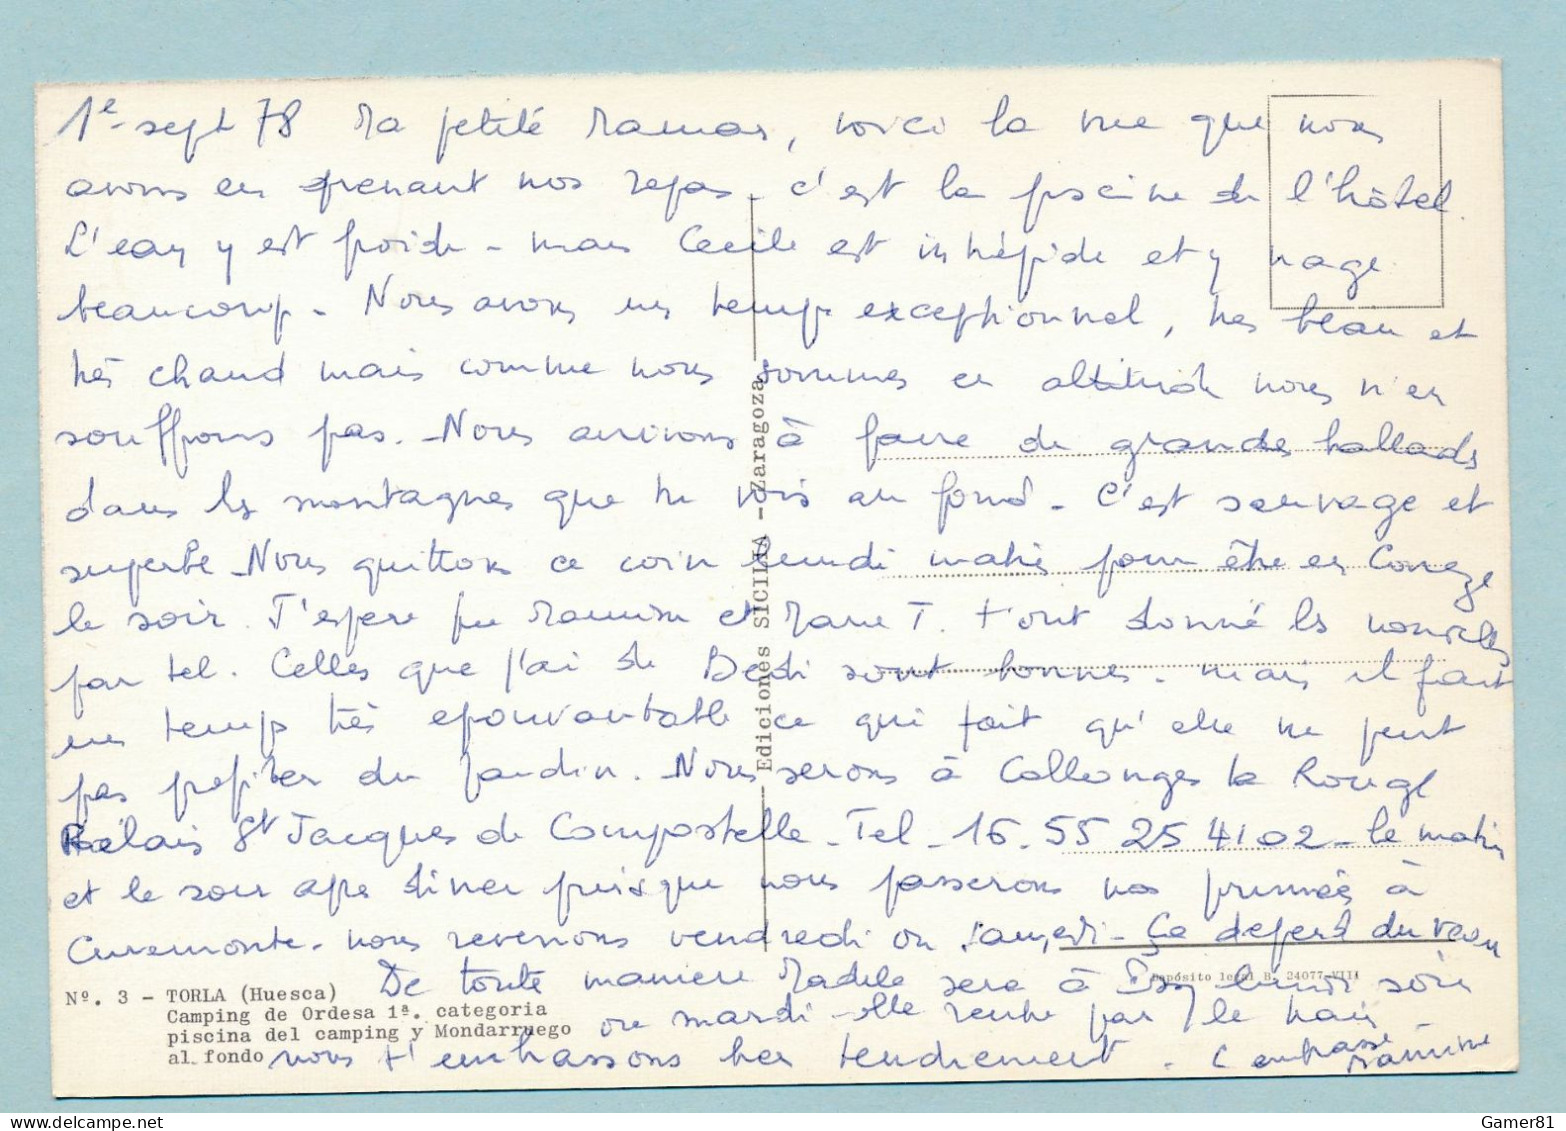 1e sept 78 Ma petite Maman, voici la vue que nous
avons en prenant nos repas - c'est la piscine de l'hôtel.
L'eau y est froide - mais Cecile est intrépide et y nage
beaucoup - Nous avons un temps exceptionnel, très beau et
très chaud mais comme nous sommes en altitude nous n'en
souffrons pas. - Nous arrivons à faire de grandes ballads
dans les montagnes que tu vois au fond - C'est sauvage et
superbe - Nous quittons ce coin lundi matin pour être en Correze
le soir. J'espere que et Marie T. t'ont donné les nouvelles
par tel. Celles que j'ai de sont bonnes - mais il fait
un temps très epouvantable ce qui fait qu'elle ne peut
pas profiter du jardin. Nous serons à Collonges la Rouge
Relais St Jacques de Compostelle - Tel - 16 - 55 25 41 02 - le matin
et le soir apre diner puisque nous passerons nos à
Curemonte - nous revenons vendredi ou samedi - Ça depend du
De toute maniere sera à lundi soir
ou mardi - elle rentre par le train
nous t'embrassons tres tendrement -
Nº. 3 - TORLA (Huesca)
Camping de Ordesa 1ª. categoria
piscina del camping y Mondarruego
al fondo
Ediciones SICILIA - Zaragoza
Depósito legal B. 24077-VIII
Gamer81